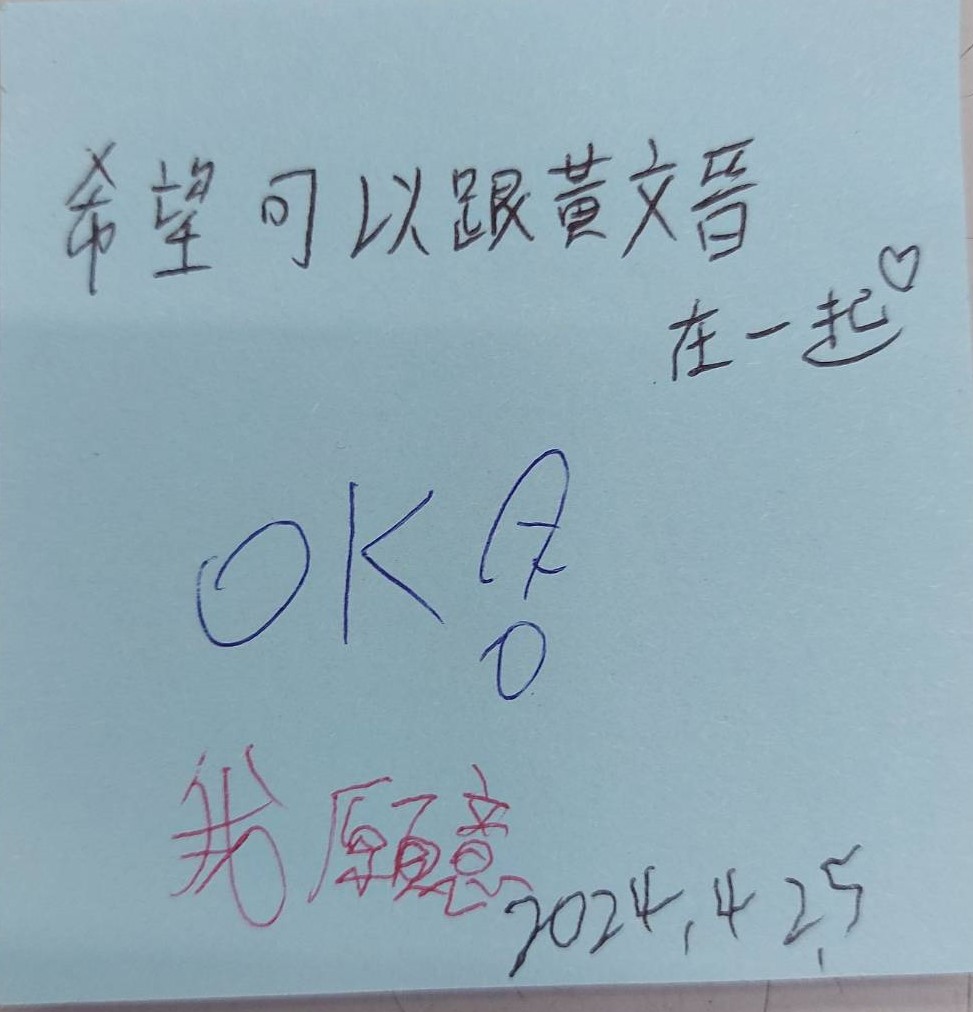 希望可以跟黃文晉
在一起♡
OK?
我願意
2024.4.25